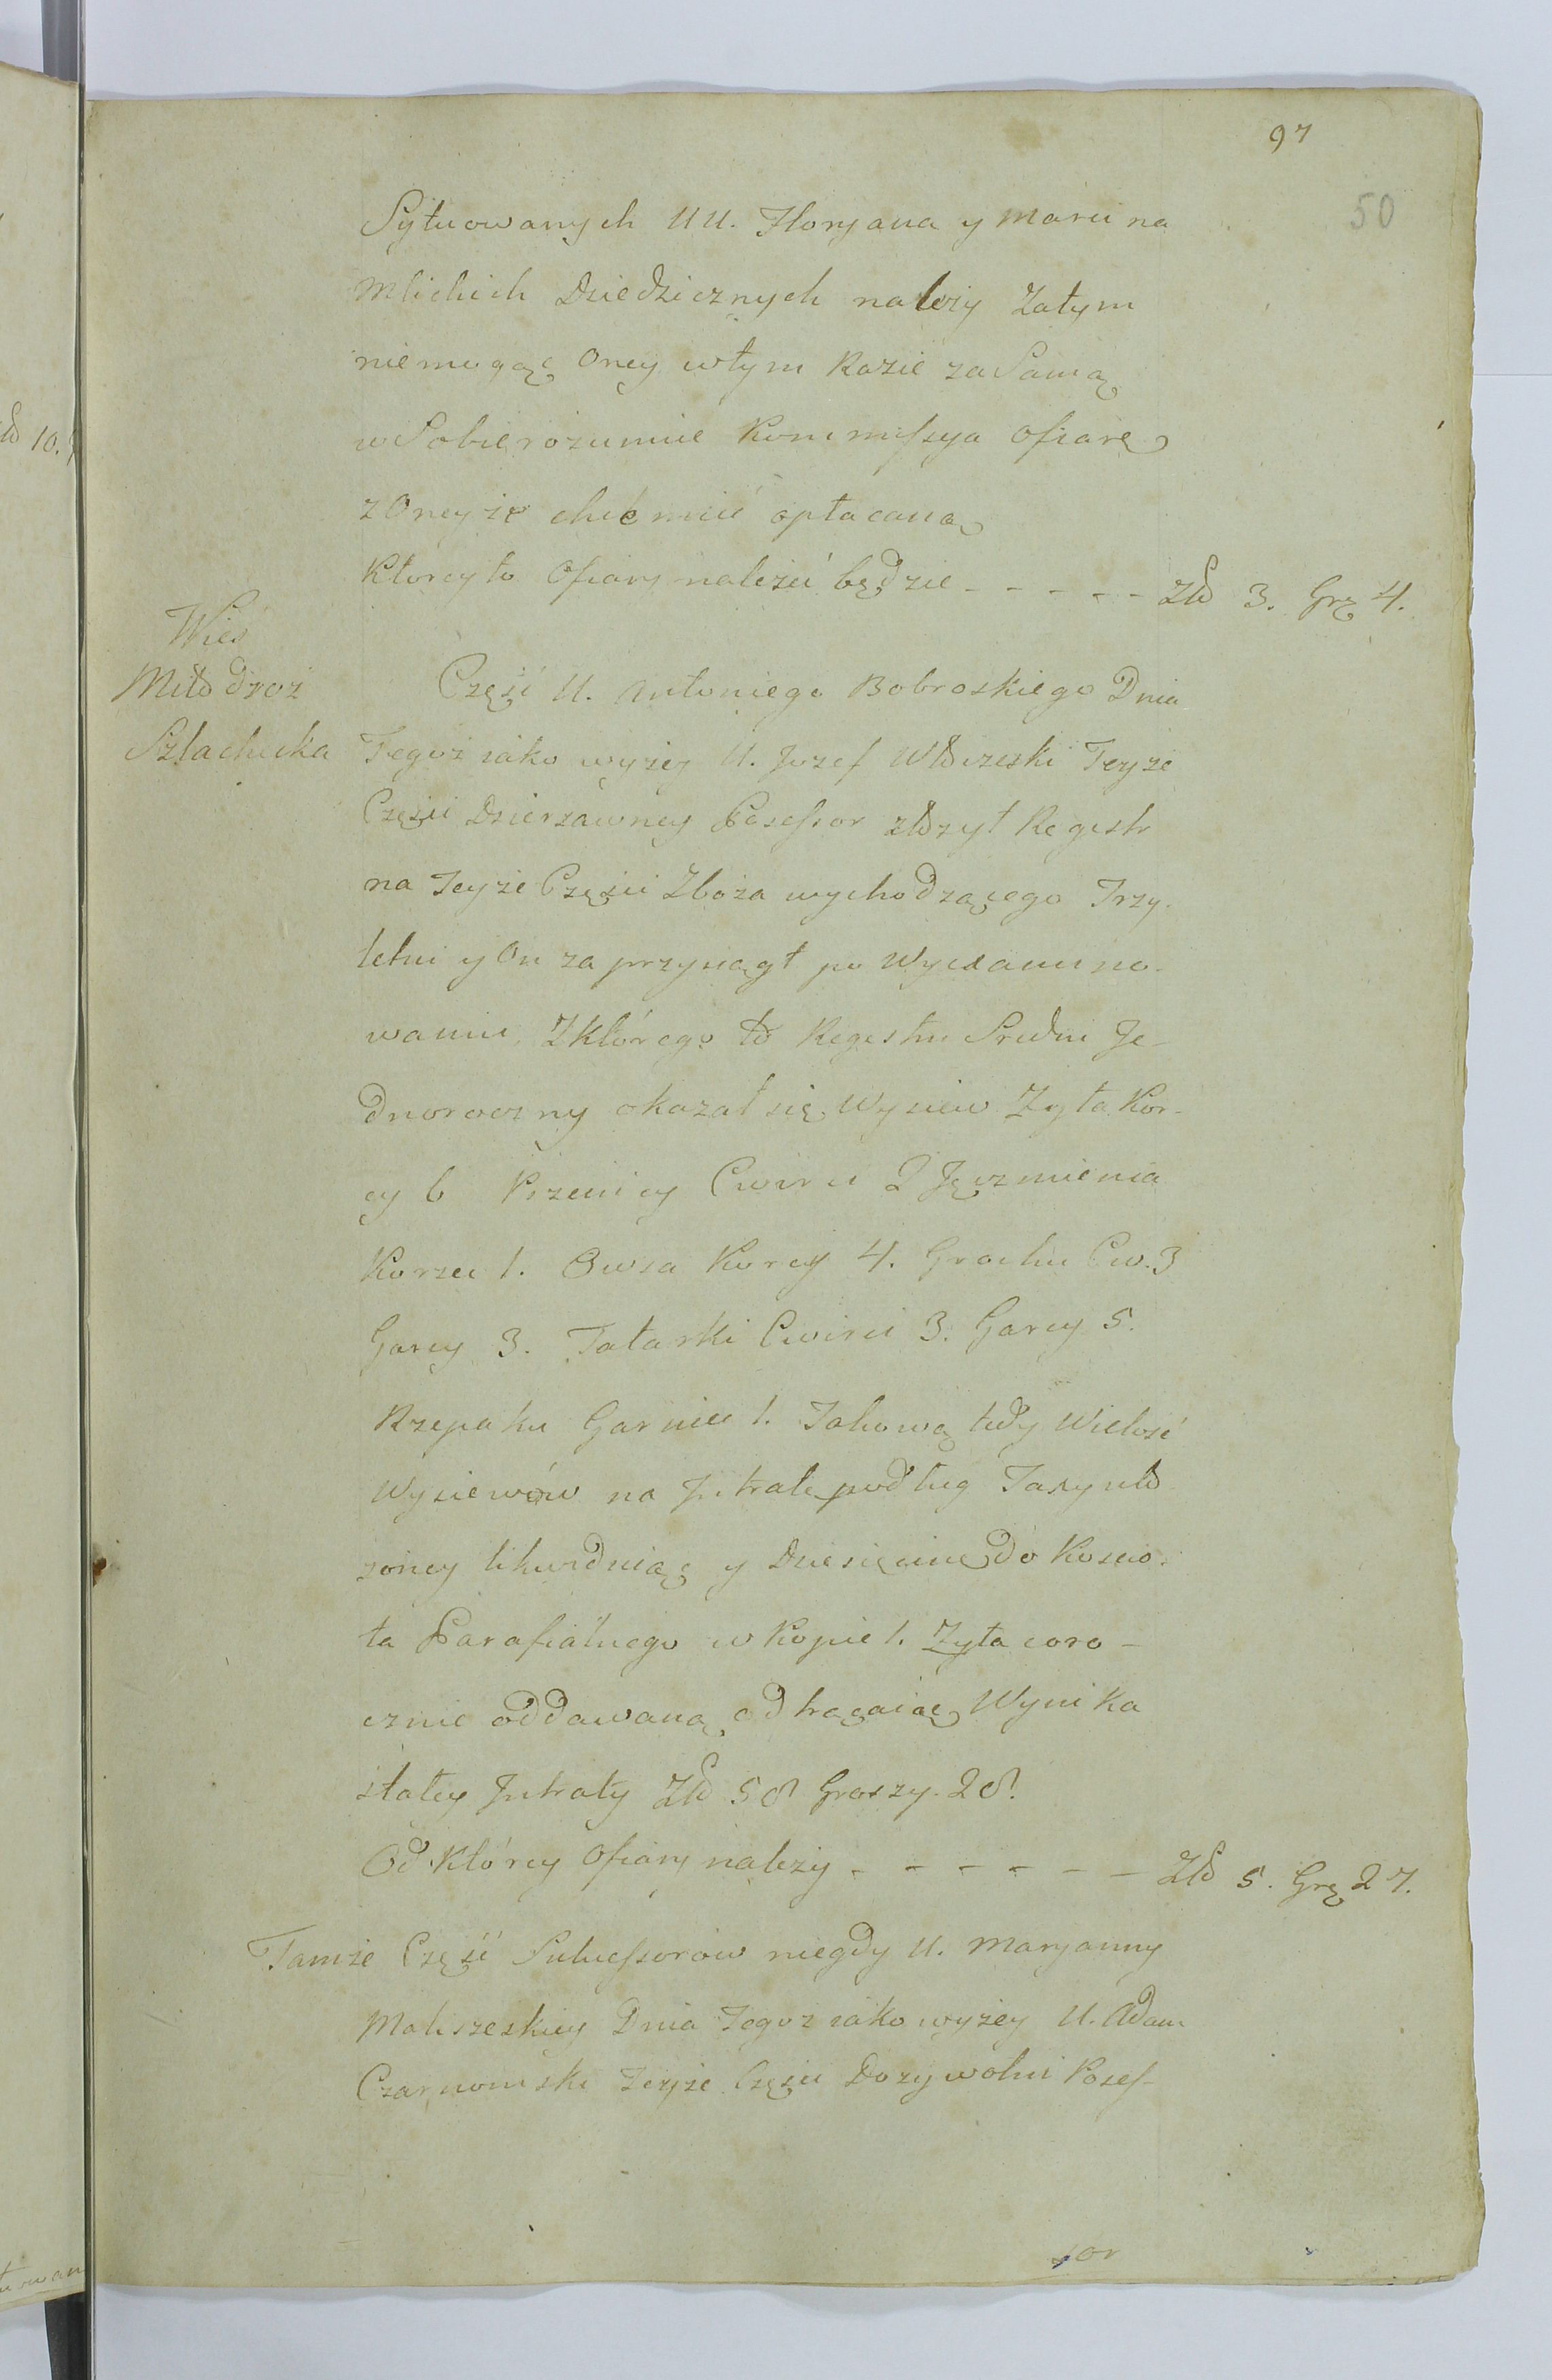 97
50
Sytuowanych UU. Floryana y Marcina
Mlickich Dziedzicznych należy Zatym
niemogąc Oney wtym Razie za Samą
w Sobie rozumie Kommissya Ofiarę
z Oneyże chce mieć opłacaną
Ktorey to Ofiary należeć będzie - - - - - Zło 3. Grę 4.
Wies
Miłodroż
Szlachecka
Część U. Antoniego Bobroskiego Dnia
Tegoż iako wyżey U. Jozef Włoczeski Teyże
Części Dzierzawney Possessor złożył Regestr
na Teyże Części Zboża wychodzącego Trzy-
letni y On zaprzysiągł po Wyexamino-
waniu Z którego to Regestru Sredni Je-
dnoroczny okazał się Wysiew Zyta Kor-
cy 6 Pszenicy Cwierci 2 Jęczmienia
Korzec 1. Owsa Korcy 4. Grochu Cw. 3
Garcy 3. Tatarki Cwierci 3. Garcy 5.
Rzepaku Garniec 1. Takową tedy Wielość
Wysiewów na Jntratę podług Taxy uło
żoney likwiduiąc y Dziesięcinę do Koscio-
ła Parafialnego w Kopie 1. Zyta coro-
cznie oddawaną odtrącaiąc Wynika
stałey Jntraty Zło 58 Groszy 28.
Od Którey Ofiary należy - - - - - - Zło 5. Grę 27.
Tamże Część Sukcessorow niegdy U. Maryanny
Maliszeskiey Dnia Tegoż iako wyżey U. Adam
Czarnomski Teyże Części Dozywotni Posses-
sor